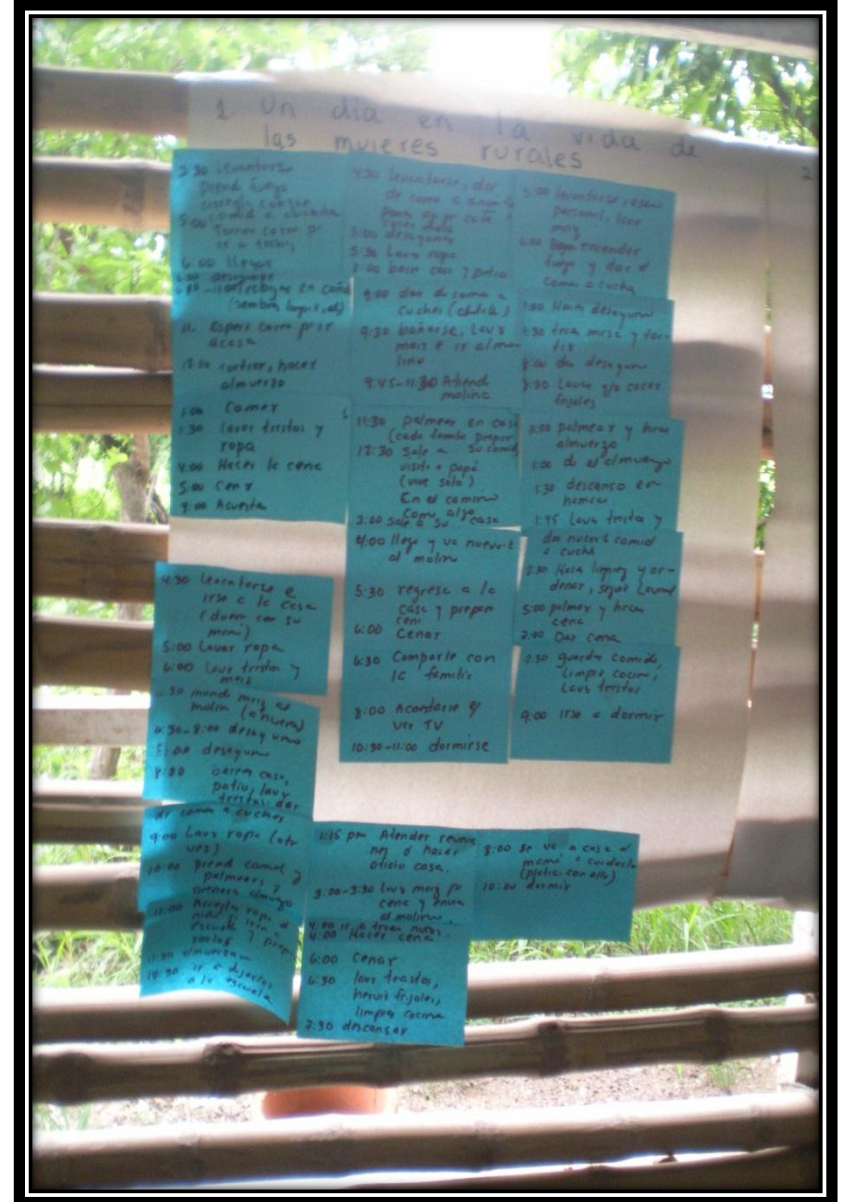 1. Un día en la vida de
las mujeres rurales
2
levantarse
prend fuego
5:00 comid a cuchitos
Tomar carro p
ir a
6:00 llegar
6:00 desayunar
en caña
11. espera carro p ir
a casa
12:00 cortier, hacer
almuerzo
1:00 Comer
1:30 lavar trastos y
ropa
4:00 Hacer la cena
5:00 Cenr
9:00 Acuesta
4:30 levantarse, dar
de comer a
5:00 desayunar
5:30 Lavar ropa
7:00 barre casa y patio
9:00 dar de comer a
cuches
9:30 bañarse, lavr
maiz e ir al mo-
lino
9:45-11:30 Atiend
molino
11:30 palmear en casa
(cada familia prepar
12:30 Sale a su comid
visita a papá
(vive solo)
En el camino
come algo
3:00 sale a su casa
4:00 llega y va nuevmt
al molino
5:30 regresa a la
casa y prepara
cena
6:00 Cenar
6:30 Comparte con
la familia
8:00 Acostarse y
ver TV
10:30-11:00 dormirse
5:00 levantarse, aseo
personal, lavr
maiz
6:00 encender
fuego y dar d
comer a cuche
7:00 Hacer desayuno
8:00 da desayuno
8:30 Lavar y/o cocer
frijoles
palmear y hacer
almuerzo
1:00 da el almuerzo
1:30 descanso en
hamaca
1:45 lava trastos y
comid
a cuche
Hace limpieza y or-
denar, seguir
5:00 palmear y hacer
cena
7:00 Dar cena
guardar comida,
limpia cocina,
lava trastos
9:00 irse a dormir
4:30 levantarse e
irse a la casa
(duerme con su
mamá)
5:00 Lavar ropa
6:00 Lavr trastos y
maiz
6:30 manda maiz al
molino
6:30-8:00 desayuno
desayuno
8:00 barrer casa,
patio, lavr
trastos, dar
de comer a cuches
9:00 Lavar ropa (otr
vez)
10:00
palmear y
almuerzo
11:00 Arregla ropa d
niño
escuela y
11:30 almuerzan
12:30 ir a dejarlos
a la escuela
1:15 pm Atender reunio
nes o hacer
oficio casa.
3:00-3:30 lavr maiz p
cena y envia
al molino
4:00 ir a traer niños
4:00 Hacer cena
6:00 Cenar
6:30 lavr trastos,
hervir frijoles,
limpiar cocina
7:30 descansar
8:00 se va a casa d
mamá a cuidarla
(platica con ella)
10:00 dormir